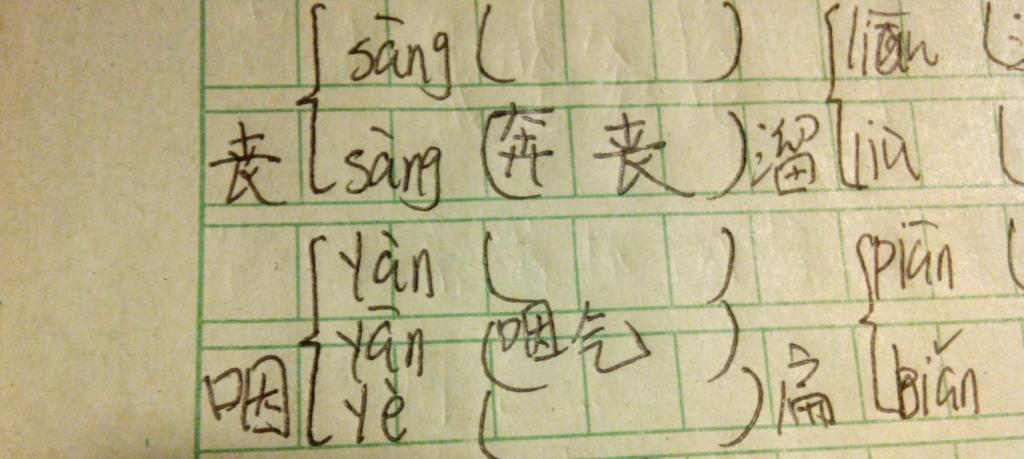 sāng ( ) liān (
丧 sàng (奔 丧 ) 溜 liù (
yàn ( ) piān (
yān (咽气 )
咽 yè ( ) 扁 biǎn